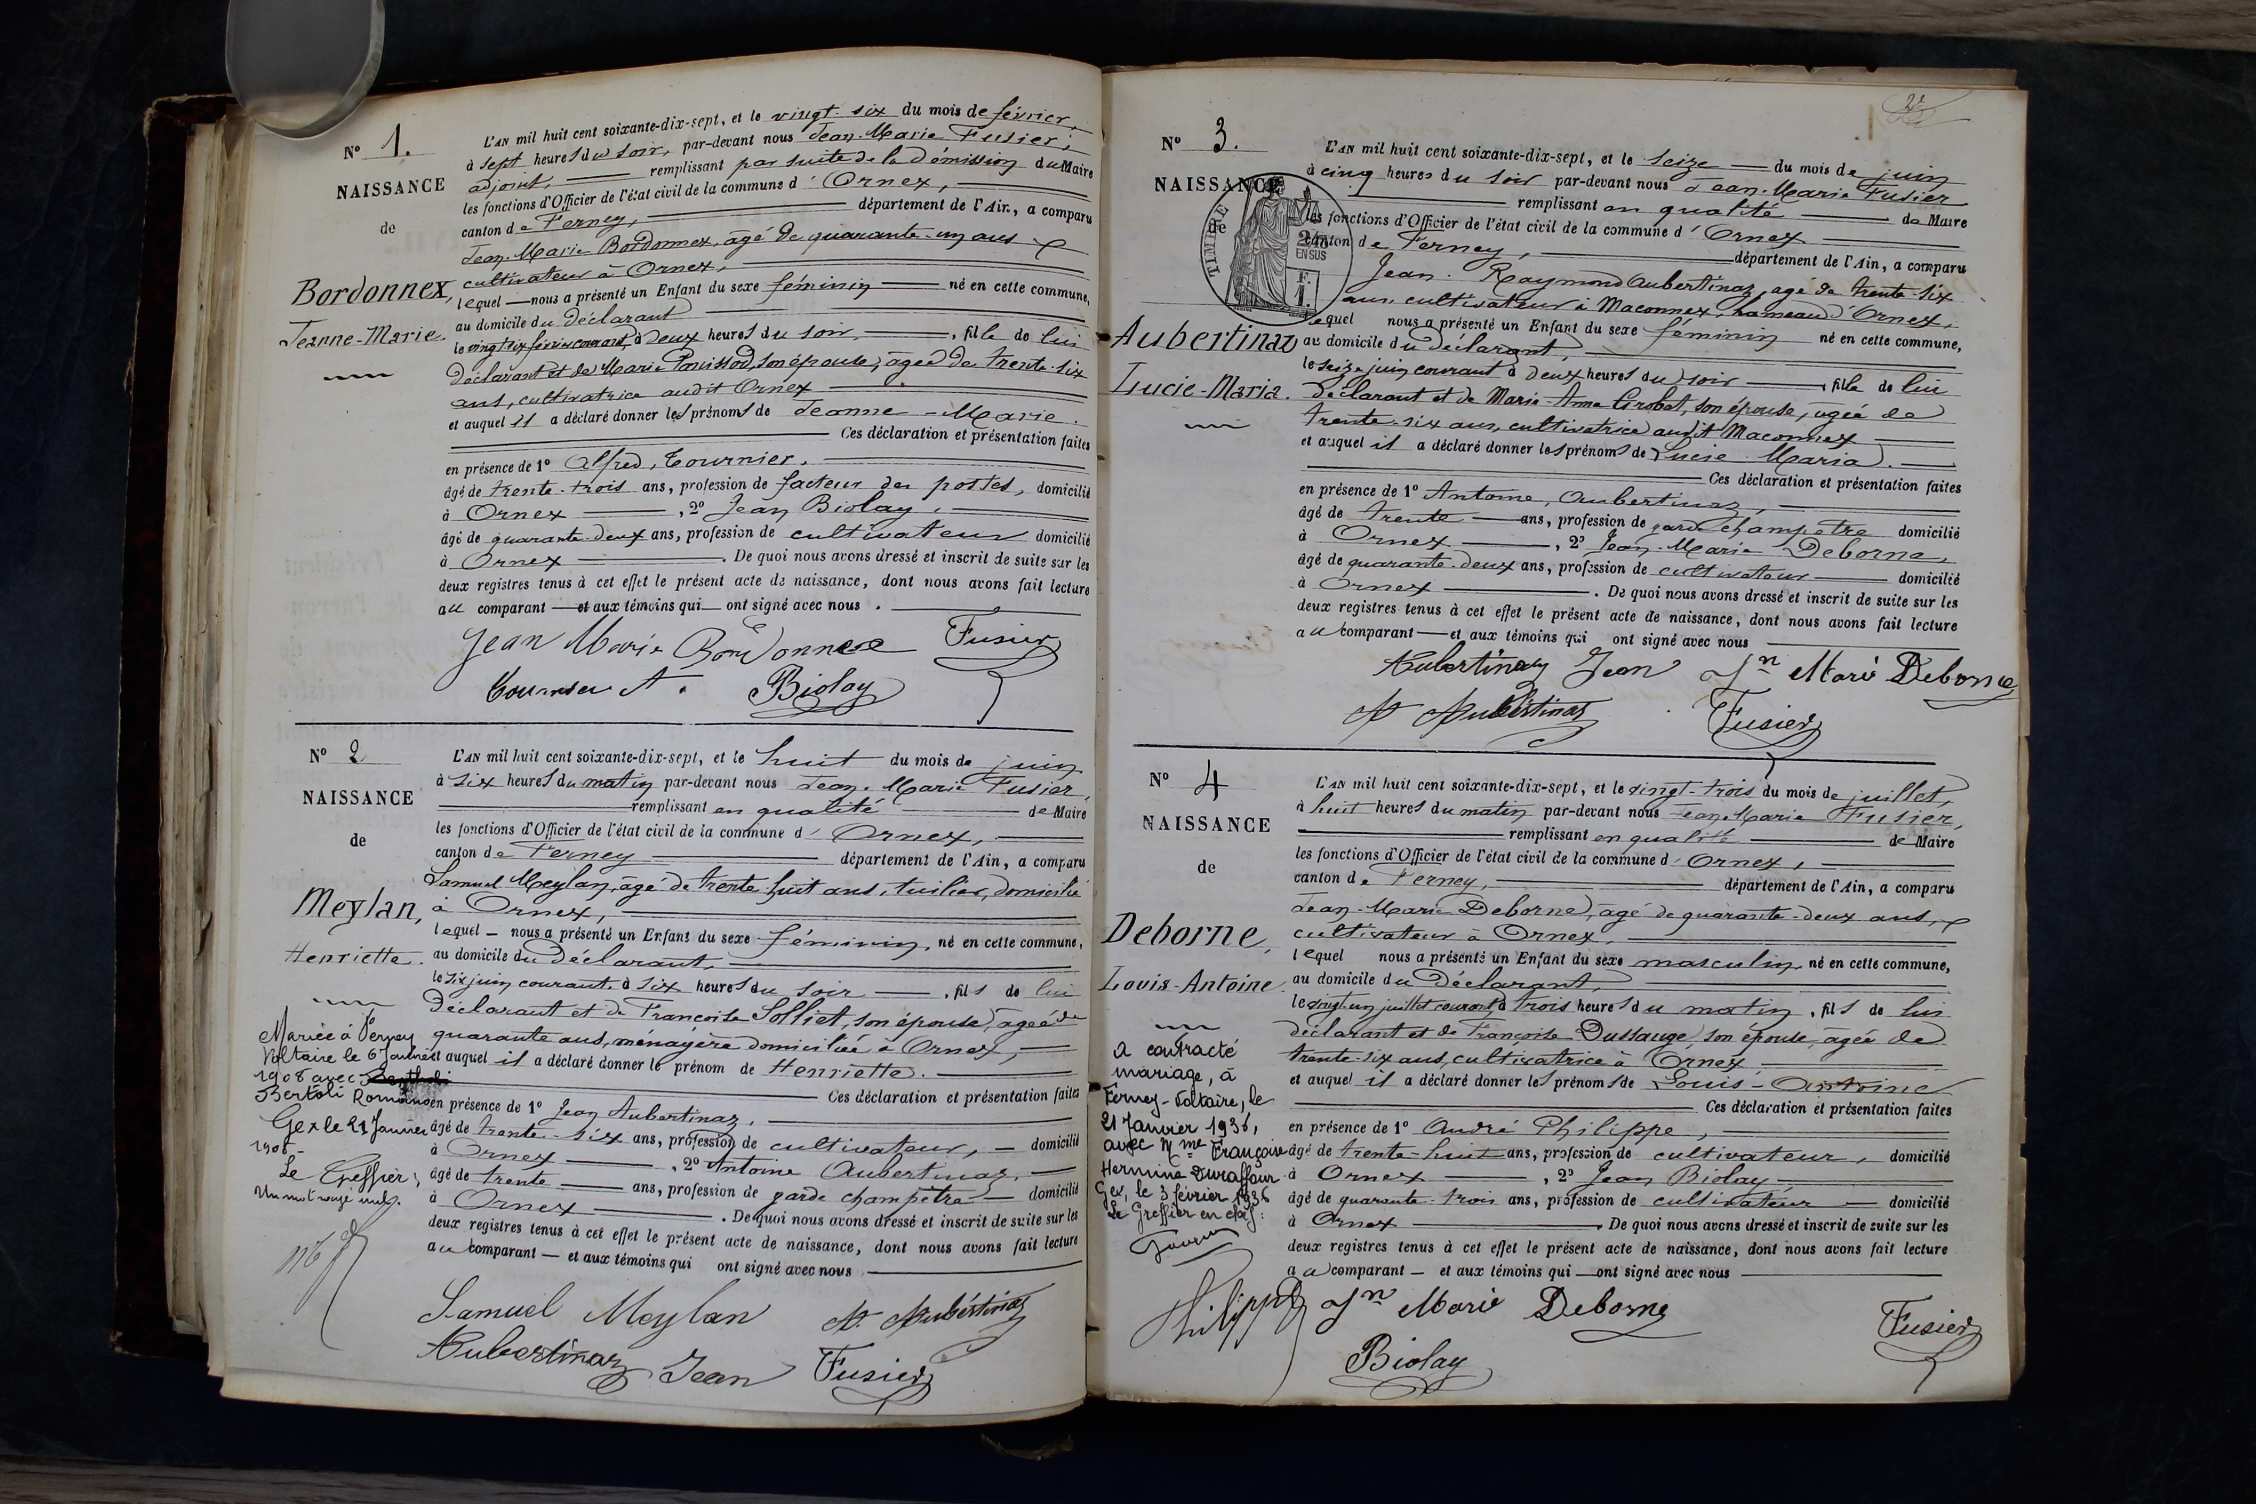 N° 1.
NAISSANCE
de
Bordonnex,
Jeanne-Marie.
L'AN mil huit cent soixante-dix-sept, et le vingt-six du mois de février,
à sept heures du soir, par-devant nous Jean-Marie Fusier,
adjoint, remplissant par suite de la démission du Maire
les fonctions d'Officier de l'état civil de la commune d'Ornex,
canton de Ferney, département de l'Ain, a comparu
Jean-Marie Bordonnex, âgé de quarante-un ans
cultivateur à Ornex,
lequel nous a présenté un Enfant du sexe féminin né en cette commune,
au domicile du déclarant
le vingt six février courant, à deux heures du soir, fille de lui
déclarant et de Marie Ponissod, son épouse, âgée de trente-six
ans, cultivatrice audit Ornex
et auquel il a déclaré donner les prénoms de Jeanne-Marie.
Ces déclaration et présentation faites
en présence de 1° Alfred Tournier,
âgé de trente-trois ans, profession de facteur des postes, domicilié
à Ornex, 2° Jean Biolay,
âgé de quarante-deux ans, profession de cultivateur domicilié
à Ornex. De quoi nous avons dressé et inscrit de suite sur les
deux registres tenus à cet effet le présent acte de naissance, dont nous avons fait lecture
au comparant et aux témoins qui ont signé avec nous.
Jean Marie Bordonnex Fusier
Tournier A. Biolay
N° 2
NAISSANCE
de
Meylan,
Henriette.
Mariée à Ferney
Voltaire le 6 Janvier
1908 avec
Bertoli Romano
Gex le 21 Janvier
1908
Le Greffier,
Un mot rayé nul.
L'AN mil huit cent soixante-dix-sept, et le huit du mois de juin
à six heures du matin par-devant nous Jean-Marie Fusier,
remplissant en qualité de Maire
les fonctions d'Officier de l'état civil de la commune d'Ornex,
canton de Ferney département de l'Ain, a comparu
Samuel Meylan, âgé de trente-huit ans, tuilier, domicilié
à Ornex,
lequel nous a présenté un Enfant du sexe féminin, né en cette commune,
au domicile du déclarant,
le six juin courant à six heures du soir, fils de lui
déclarant et de Françoise Solliet, son épouse, âgée de
quarante ans, ménagère domiciliée à Ornex,
et auquel il a déclaré donner le prénom de Henriette.
Ces déclaration et présentation faites
en présence de 1° Jean Aubertinaz,
âgé de trente-six ans, profession de cultivateur, domicilié
à Ornex, 2° Antoine Aubertinaz,
âgé de trente ans, profession de garde champêtre domicilié
à Ornex. De quoi nous avons dressé et inscrit de suite sur les
deux registres tenus à cet effet le présent acte de naissance, dont nous avons fait lecture
au comparant et aux témoins qui ont signé avec nous
Samuel Meylan A. Aubertinaz
Aubertinaz Jean Fusier
2
N° 3.
NAISSANCE
de
TIMBRE
2/10
EN SUS
F.
1.
Aubertinaz
Lucie-Maria.
L'AN mil huit cent soixante-dix-sept, et le seize du mois de juin
à cinq heures du soir par-devant nous Jean-Marie Fusier
remplissant en qualité de Maire
les fonctions d'Officier de l'état civil de la commune d'Ornex
canton de Ferney, département de l'Ain, a comparu
Jean-Raymond Aubertinaz, âgé de trente-six
ans, cultivateur à Maconnex, hameau d'Ornex,
lequel nous a présenté un Enfant du sexe féminin né en cette commune,
au domicile du déclarant,
le seize juin courant à deux heures du soir, fille de lui
déclarant et de Marie-Anne Grobet, son épouse, âgée de
trente-six ans, cultivatrice audit Maconnex
et auquel il a déclaré donner les prénoms de Lucie Maria.
Ces déclaration et présentation faites
en présence de 1° Antoine Aubertinaz,
âgé de trente ans, profession de garde champêtre domicilié
à Ornex, 2° Jean-Marie Deborne,
âgé de quarante-deux ans, profession de cultivateur domicilié
à Ornex. De quoi nous avons dressé et inscrit de suite sur les
deux registres tenus à cet effet le présent acte de naissance, dont nous avons fait lecture
au comparant et aux témoins qui ont signé avec nous
Aubertinaz Jean Jn Marie Deborne
A. Aubertinaz Fusier
N° 4
NAISSANCE
de
Deborne,
Louis-Antoine
a contracté
mariage, à
Ferney-Voltaire, le
21 Janvier 1936,
avec Mme Françoise
Hermine Duraffour.
Gex, le 3 février 1936
Le Greffier en chef:
L'AN mil huit cent soixante-dix-sept, et le vingt-trois du mois de juillet,
à huit heures du matin par-devant nous Jean-Marie Fusier,
remplissant en qualité de Maire
les fonctions d'Officier de l'état civil de la commune d'Ornex,
canton de Ferney, département de l'Ain, a comparu
Jean-Marie Deborne, âgé de quarante-deux ans,
cultivateur à Ornex,
lequel nous a présenté un Enfant du sexe masculin né en cette commune,
au domicile du Déclarant,
le vingt-un juillet courant à trois heures du matin, fils de lui
déclarant et de Françoise Dussauge, son épouse, âgée de
trente-six ans, cultivatrice à Ornex
et auquel il a déclaré donner les prénoms de Louis-Antoine
Ces déclaration et présentation faites
en présence de 1° André Philippe,
âgé de trente-huit ans, profession de cultivateur, domicilié
à Ornex, 2° Jean Biolay,
âgé de quarante-trois ans, profession de cultivateur domicilié
à Ornex. De quoi nous avons dressé et inscrit de suite sur les
deux registres tenus à cet effet le présent acte de naissance, dont nous avons fait lecture
au comparant et aux témoins qui ont signé avec nous
Philippe Jn Marie Deborne Fusier
Biolay